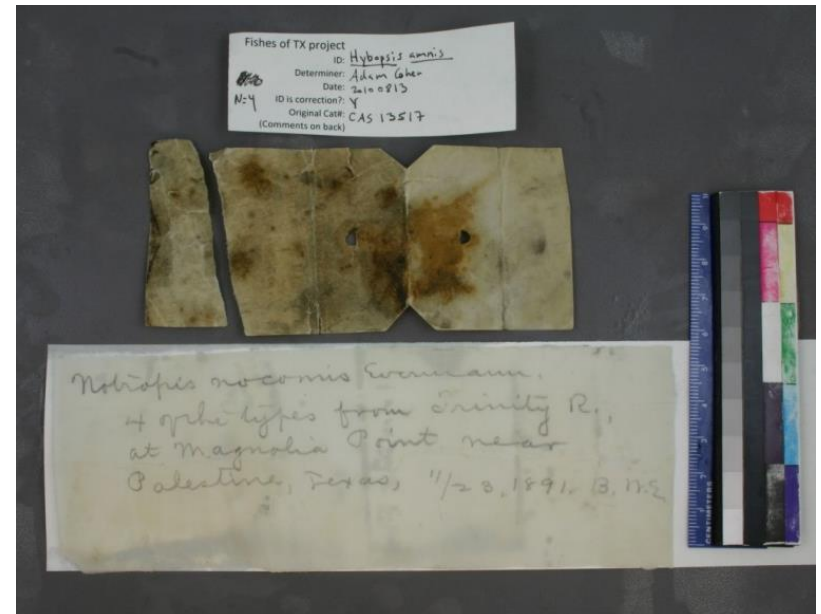 Fishes of TX project
ID: Hybopsis amnis
Determiner: Adam Cohen
Date: 20100813
N=4 ID is correction?: Y
Original Cat#: CAS 13517
(Comments on back)
Notropis nocomis Evermann.
4 of the types from Trinity R.,
at Magnolia Point near
Palestine, Texas, 11/23, 1891. B. W. E
CENTIMETERS